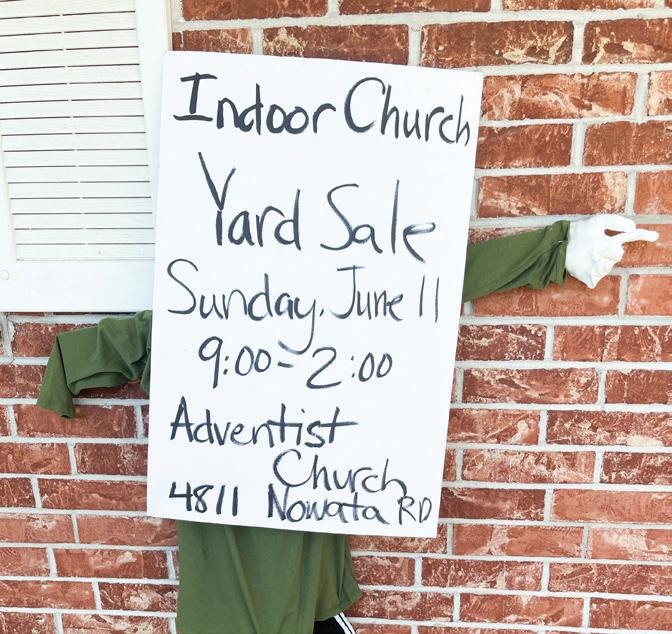 Indoor Church
Yard Sale
Sunday, June 11
9:00-2:00
Adventist
Church
4811 Nowata RD